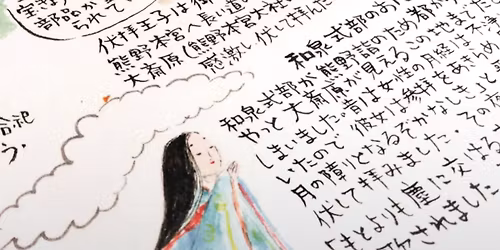 部品が
られて
伏拝王子は
熊野本宮へ長道
大斎原(熊野本宮大社
感激し伏して拝んだ
和泉式部のお
和泉式部が熊野詣のため都か
やっと大斎原が見える
しまいました。昔は女性の月経は
いたので 彼女は参拝をあきらめ
月の障りとなるぞかなしきと
伏して拝みました。その
もとよりも塵に交はる
されました
合祀
う.